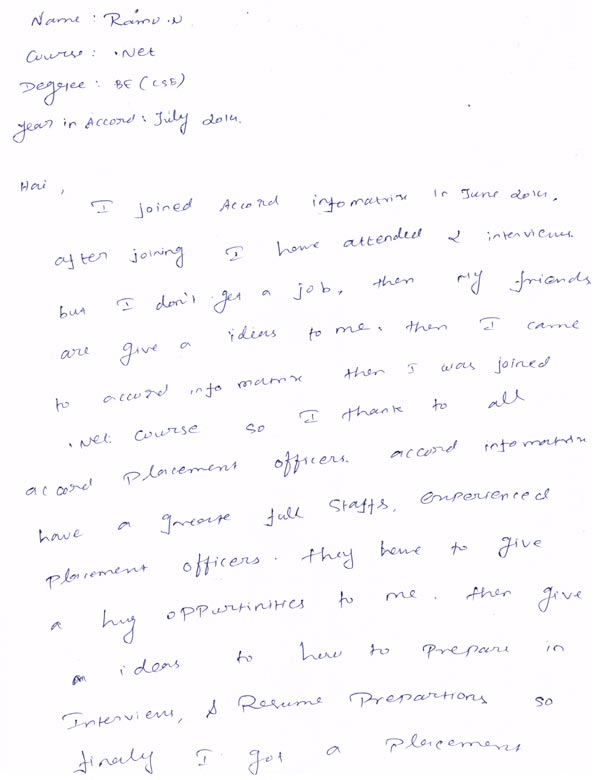 Name : Ramu .N
Course : .Net
Degree : BE (CSE)
Year in Accord : July 2014.
Hai ,
I joined Accord infomatrix in June 2014.
after joining I have attended 2 interviews
but I don't get a job, then my friends
are give a ideas to me. then I came
to accord info matrix then I was joined
.Net course so I thank to all
accord placement officers. accord infomatrix
have a full staffs, experienced
placement officers. they have to give
a hug oppurtinities to me. then give
ideas to how to prepare in
Interview, & Resume Prepartions so
finaly I got a placement